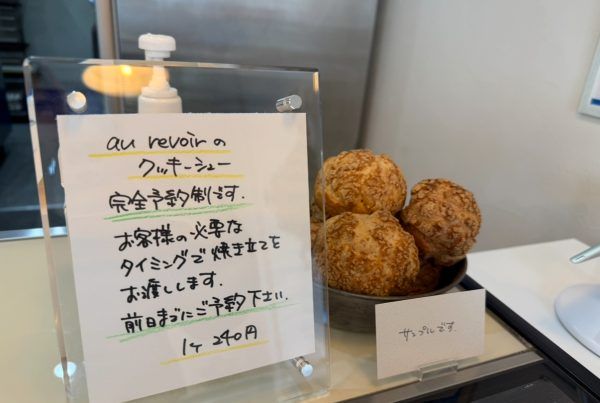 au revoirの
クッキーシュー
完全予約制です.
お客様の必要な
タイミングで焼き立てを
お渡しします.
前日までにご予約下さい.
1ヶ 240円
サンプルです